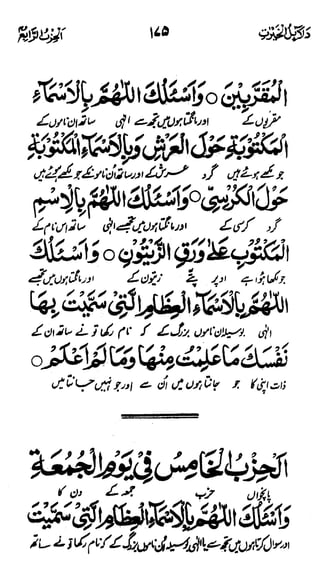 دلائل الخیرات ۱۷۵ الحزب الرابع
الْمُقَرَّبِيْنَ ○ وَاَسْئَلُكَ اللّٰهُمَّ بِالْاَسْمَآءِ
مقربوں کے اور مانگتا ہوں میں تجھ سے الٰہی ساتھ ان ناموں کے
الْمَكْتُوْبَةِ حَوْلَ الْعَرْشِ وَبِالْاَسْمَآءِ الْمَكْتُوْبَةِ
جو لکھے ہوئے ہیں گرد عرش کے اور ساتھ ان ناموں کے جو لکھے ہوئے ہیں
حَوْلَ الْكُرْسِيِّ ○ وَاَسْئَلُكَ اللّٰهُمَّ بِالْاِسْمِ
گرد کرسی کے اور مانگتا ہوں میں تجھ سے الٰہی ساتھ اس نام کے
الْمَكْتُوْبِ عَلٰى وَرَقِ الزَّيْتُوْنِ ○ وَاَسْئَلُكَ
جو لکھا ہوا ہے اوپر پتے زیتون کے اور مانگتا ہوں میں تجھ سے
اللّٰهُمَّ بِالْاَسْمَآءِ الْعِظَامِ الَّتِيْ سَمَّيْتَ بِهَا
الٰہی بوسیلہ ان ناموں بزرگ کے کہ نام رکھا تو نے ساتھ ان کے
نَفْسَكَ مَا عَلِمْتُ مِنْهَا وَمَا لَمْ اَعْلَمْ ○
ذات اپنی کا جو جانتا ہوں میں ان سے اور جو نہیں جانتا میں
اَلْحِزْبُ الْخَامِسُ فِيْ يَوْمِ الْجُمُعَةِ
پانچواں حزب جمعہ کے دن کا
وَاَسْئَلُكَ اللّٰهُمَّ بِالْاَسْمَآءِ الْعِظَامِ الَّتِيْ سَمَّيْتَ
اور سوال کرتا ہوں میں تجھ سے یا الٰہی بوسیلہ ان ناموں بزرگ کے کہ نام رکھا تو نے ساتھ